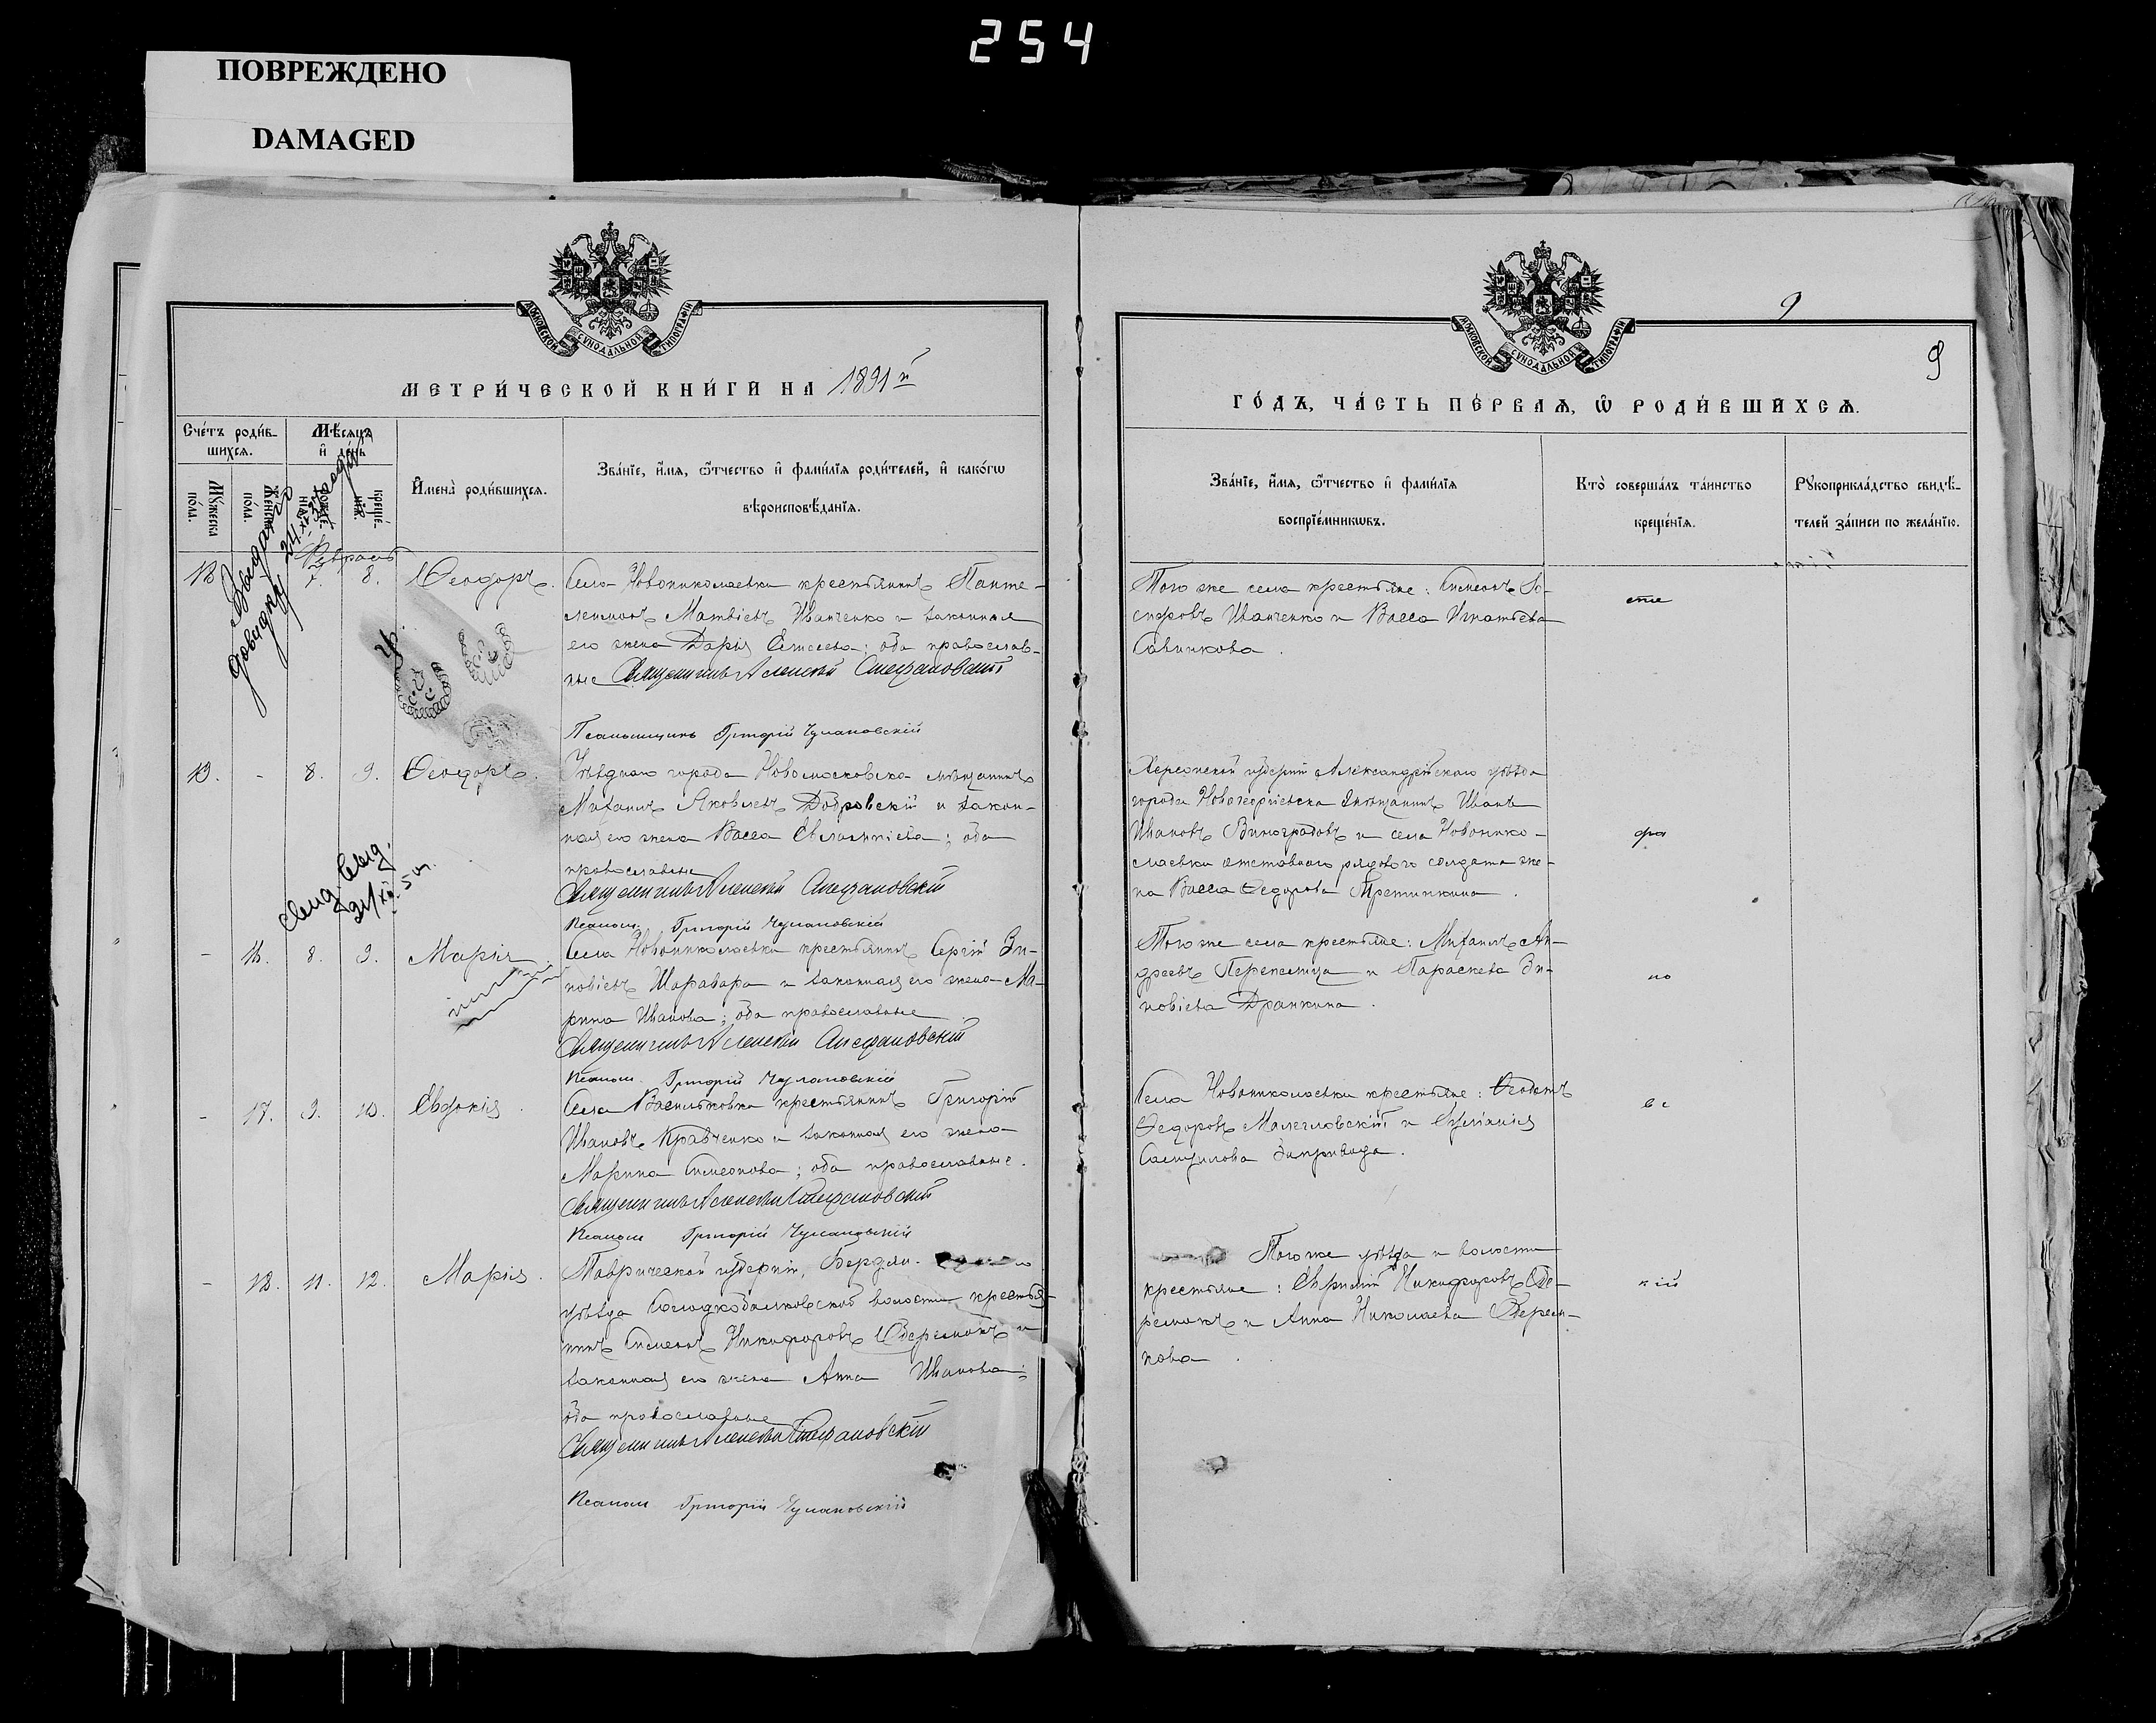 254
ПОВРЕЖДЕНО
DAMAGED
МОСКОВСКОЙ СѴНОДАЛЬНОЙ ТИПОГРАФІИ
МЕТРИ́ЧЕСКОЙ КНИ́ГИ НА 1891 й
Сче́тъ роди́в-
шихся.
Мѣ́сяцъ
и҆ де́нь
Мꙋ́жеска
по́ла.
Же́нска
по́ла.
рожде́-
нїѧ.
креще́-
нїѧ.
И҆мена̀ роди́вшихся.
Зва́нїе, и҆́мя, ѻ҆́тчество и҆ фами́лїя роди́телей, и҆ како́гѡ
вѣроисповѣ́данїя.
Февраль
7. 8. Ѳеодоръ.
Села Новониколаевки крестьянинъ Панте-
леимонъ Матвѣевъ Иванченко и законная
его жена Дарія; оба православ-
ные Священникъ Алексѣй Стефановскій
Псаломщикъ Григорій Чулановскій
8. 9. Ѳеодоръ.
города Новомосковска мѣщанинъ
Михаилъ Яковлевъ Добровскій и закон-
ная его жена Васса Евлампіева; оба
православные
Священникъ Алексѣй Стефановскій
Псалом. Григорій Чулановскій
- 16. 8. 9. Марія.
Села Новониколаевки крестьянинъ Сергій Зи-
новіевъ Шаравара и законная его жена Ма-
рина Иванова; оба православные.
Священникъ Алексѣй Стефановскій
Псалом. Григорій Чулановскій
- 17. 9. 10. Евдокія.
Села Васильковка крестьянинъ Григорій
Ивановъ Кравченко и законная его жена
Марина Симеонова; оба православные.
Священникъ Алексѣй Стефановскій
Псалом Григорій Чулановскій
- 18. 11. 12. Марія.
Таврической губерніи, Бердян-
уѣзда волости крестья-
нинъ Симеонъ Никифоровъ и
законная его жена Анна Иванова;
оба православные
Священникъ Алексѣй Стефановскій
Псалом Григорій Чулановскій
9
9
МОСКОВСКОЙ СѴНОДАЛЬНОЙ ТИПОГРАФІИ
ГО́ДЪ, ЧА́СТЬ ПЕ́РВАѦ, Ѡ҆ РОДИ́ВШИХСѦ.
Зва́нїе, и҆́мя, ѻ҆́тчество и҆ фами́лїя
воспрїе́мникѡвъ.
Кто̀ соверша́лъ та́инство
креще́нїя.
Рꙋкоприкла́дство свидѣ́-
телей за́писи по жела́нїю.
Того же села крестьяне: Симеонъ Іо-
сифовъ Иванченко и Васса Игнатьева
Савинкова.
сте
Херсонской губерніи Александрійскаго уѣзда
города Новогеоргіевска мѣщанинъ Иванъ
Ивановъ Виноградовъ и села Новонико-
лаевки отставнаго рядового солдата же-
на Васса Ѳедорова.
фа
Того же села крестьяне: Михаилъ Ан-
дреевъ Перепелица и Параскева Зи-
новіева Дранкина.
но
Села Новониколаевки крестьяне:
Ѳедоровъ и
Самуилова.
вс
Того же уѣзда и волости
крестьяне: Никифоровъ
и Анна Николаева
кова.
кій